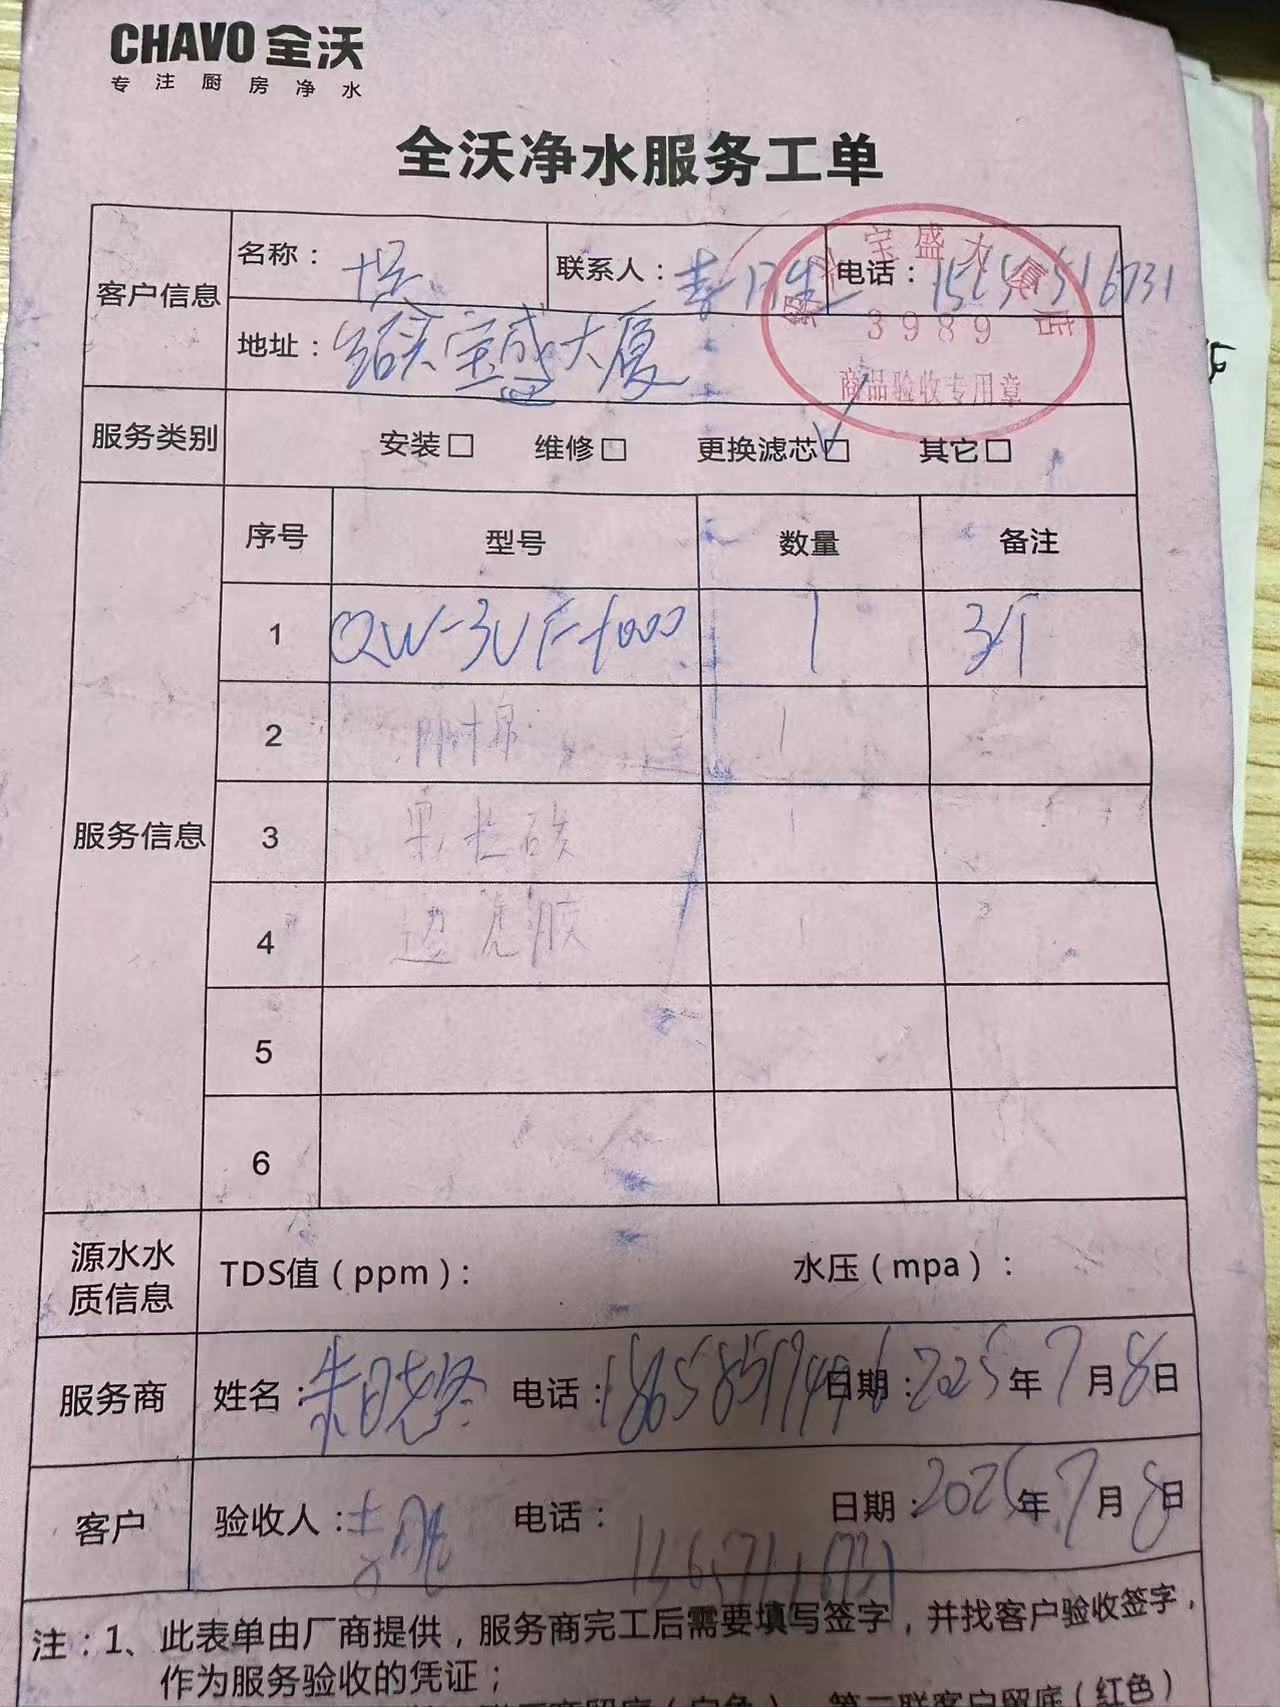 CHAVO 全沃
专注厨房净水
全沃净水服务工单
客户信息
名称：
联系人：
电话：
地址：绍兴宝盛大厦
宝盛大厦店
3989
商品验收专用章
服务类别
安装□ 维修□ 更换滤芯☑ 其它□
服务信息
序号 型号 数量 备注
1 QW-3UF-1000 1
2 PP棉 1
3 果粒碳 1
4 1
5
6
源水水质信息
TDS值（ppm）： 水压（mpa）：
服务商
姓名：朱晓 电话： 日期：2025年7月8日
客户
验收人： 电话： 日期：2025年7月8日
注：1、此表单由厂商提供，服务商完工后需要填写签字，并找客户验收签字，
作为服务验收的凭证；